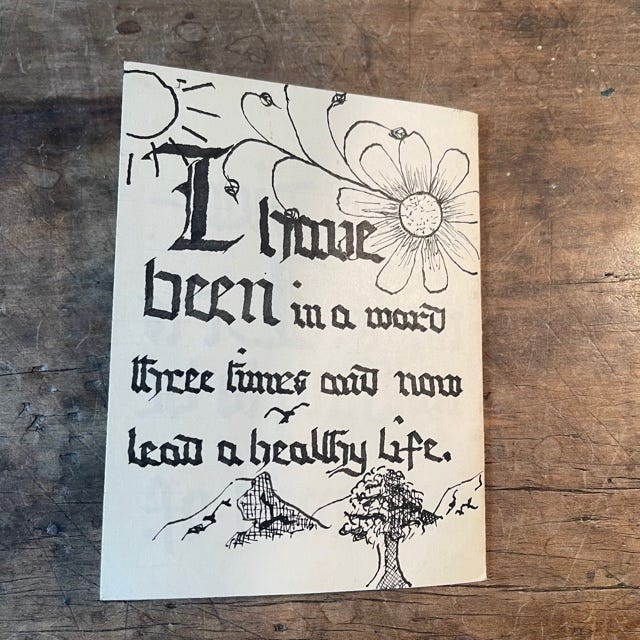 I have
been in a ward
three times and now
lead a healthy life.